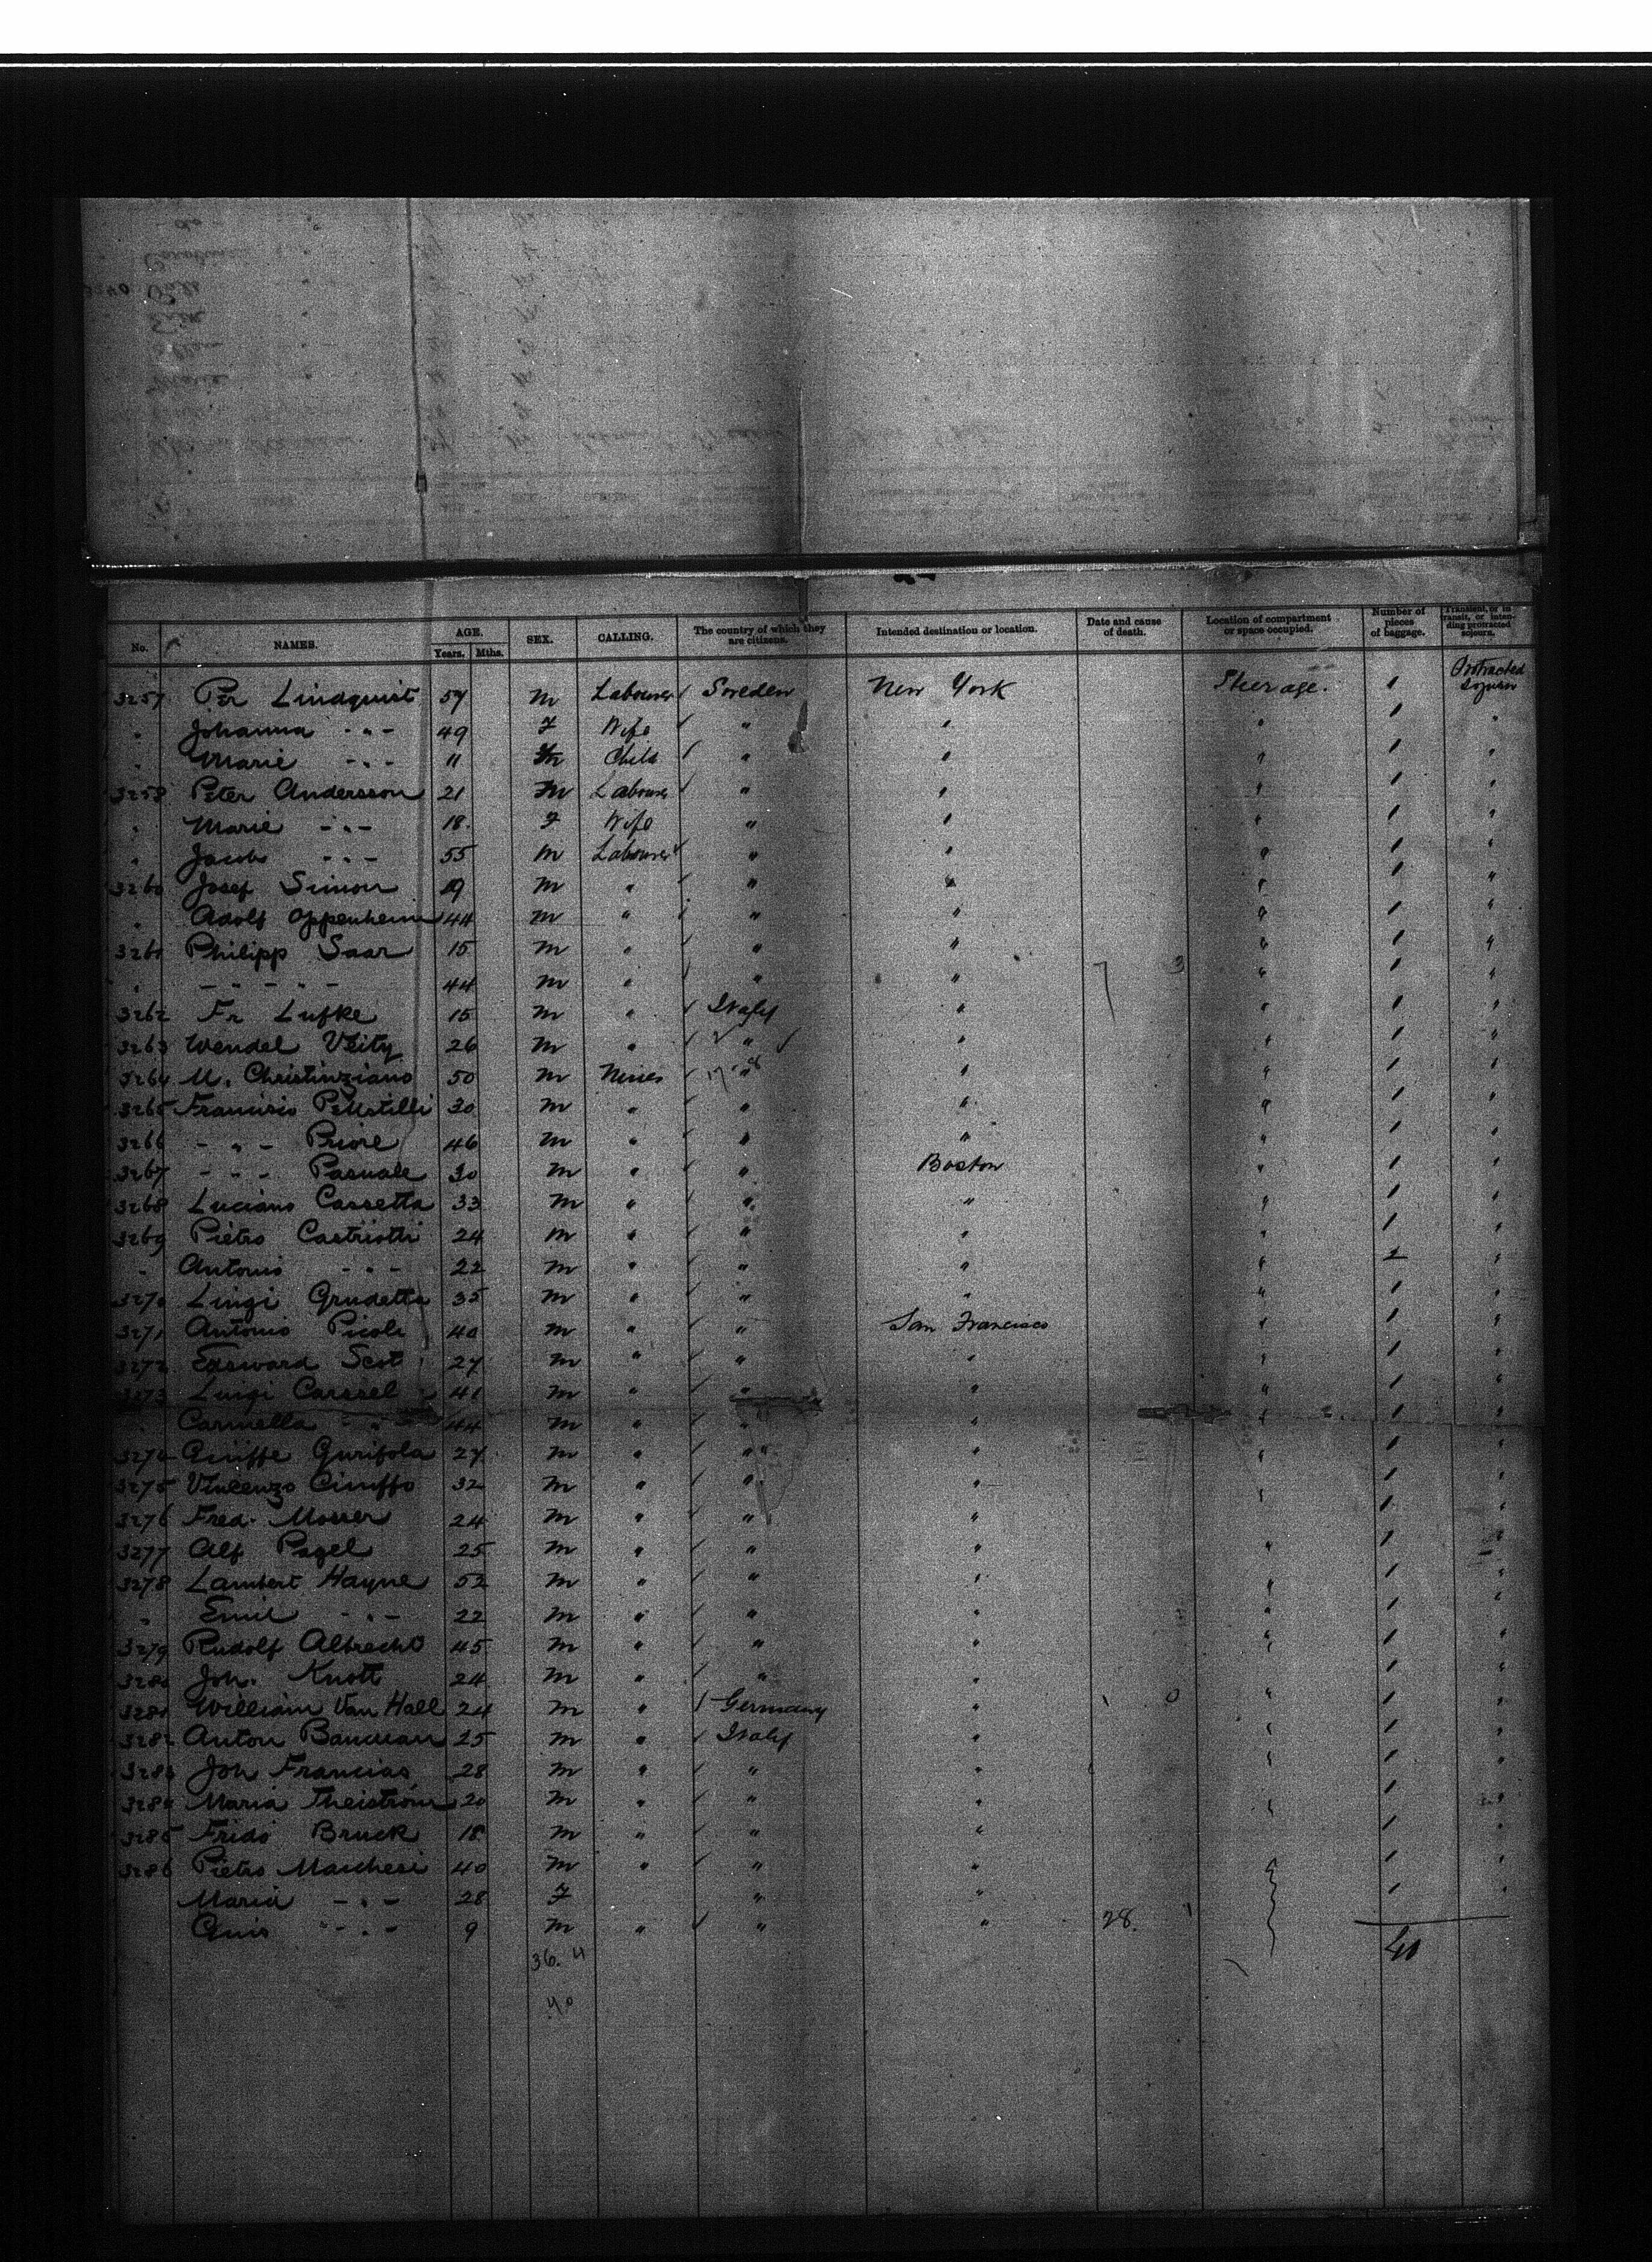 No. NAMES. AGE. Years. Mths. SEX. CALLING. The country of which they are citizens. Intended destination or location. Date and cause of death. Location of compartment or space occupied. Number of pieces of baggage. Transient, or in transit, or intending protracted sojourn.
3257 Per Lindquist 57 m Labourer Sweden New York Steerage. 1 Protracted Sojourn
" Johanna - " - 49 F Wife " " " 1 "
" Marie - " - 11 Child " " " 1 "
3258 Peter Andersson 21 m Labourer " " " 1 "
" Marie - " - 18 F Wife " " " 1 "
" Jacob - " - 55 m Labourer " " " 1 "
3260 Josef Simon 19 m " " " " 1 "
" Adolf Oppenheim 44 m " " " " 1 "
3261 Philipp Saar 15 m " " " " 1 "
" - - - - - 44 m " " " 7 3 " 1 "
3262 Fr Lufke 15 m " Italy " " 1 "
3263 Wendel Veity 26 m " " " " 1 "
3264 M. Christinziano 50 m " " " 1 "
3265 30 m " " " " 1 "
3266 - " - Priore 46 m " " " " 1 "
3267 - " - Pasuale 30 m " " Boston " 1 "
3268 Luciano Cassetta 33 m " " " " 1 "
3269 Pietro Castriotti 24 m " " " " 1 "
" Antonio - " - 22 m " " " " 1 "
3270 Luigi Grudetta 35 m " " " " 1 "
3271 Antonio Picoli 40 m " " San Francisco " 1 "
3272 Edward Scot 27 m " " " " 1 "
3273 Luigi Carssel 41 m " " " " 1 "
Carmella - " - 44 m " " " " 1 "
3274 27 m " " " " 1 "
3275 Vincenzo Ciuffo 32 m " " " " 1 "
3276 Fred. Mosser 24 m " " " 1 "
3277 Alf Pagel 25 m " " " " 1 "
3278 Lambert Hayne 52 m " " " " 1 "
" Emil - " - 22 m " " " " 1 "
3279 Rudolf Albrecht 45 m " " " " 1 "
3280 Joh. Knott 24 m " " " 1 "
3281 William Van Hall 24 m " Germany " " 1 "
3282 Anton 25 m " Italy " " 1 "
3283 Joh Francias 28 m " " " " 1 "
3284 Maria Theistrom 20 m " " " " 1 "
3285 Frido Bruck 18 m " " " 1 "
3286 Pietro Marchesi 40 m " " " 1 "
Maria - " - 28 F " " 1 "
- " - 9 m " " " 28. 1
36. 4
40